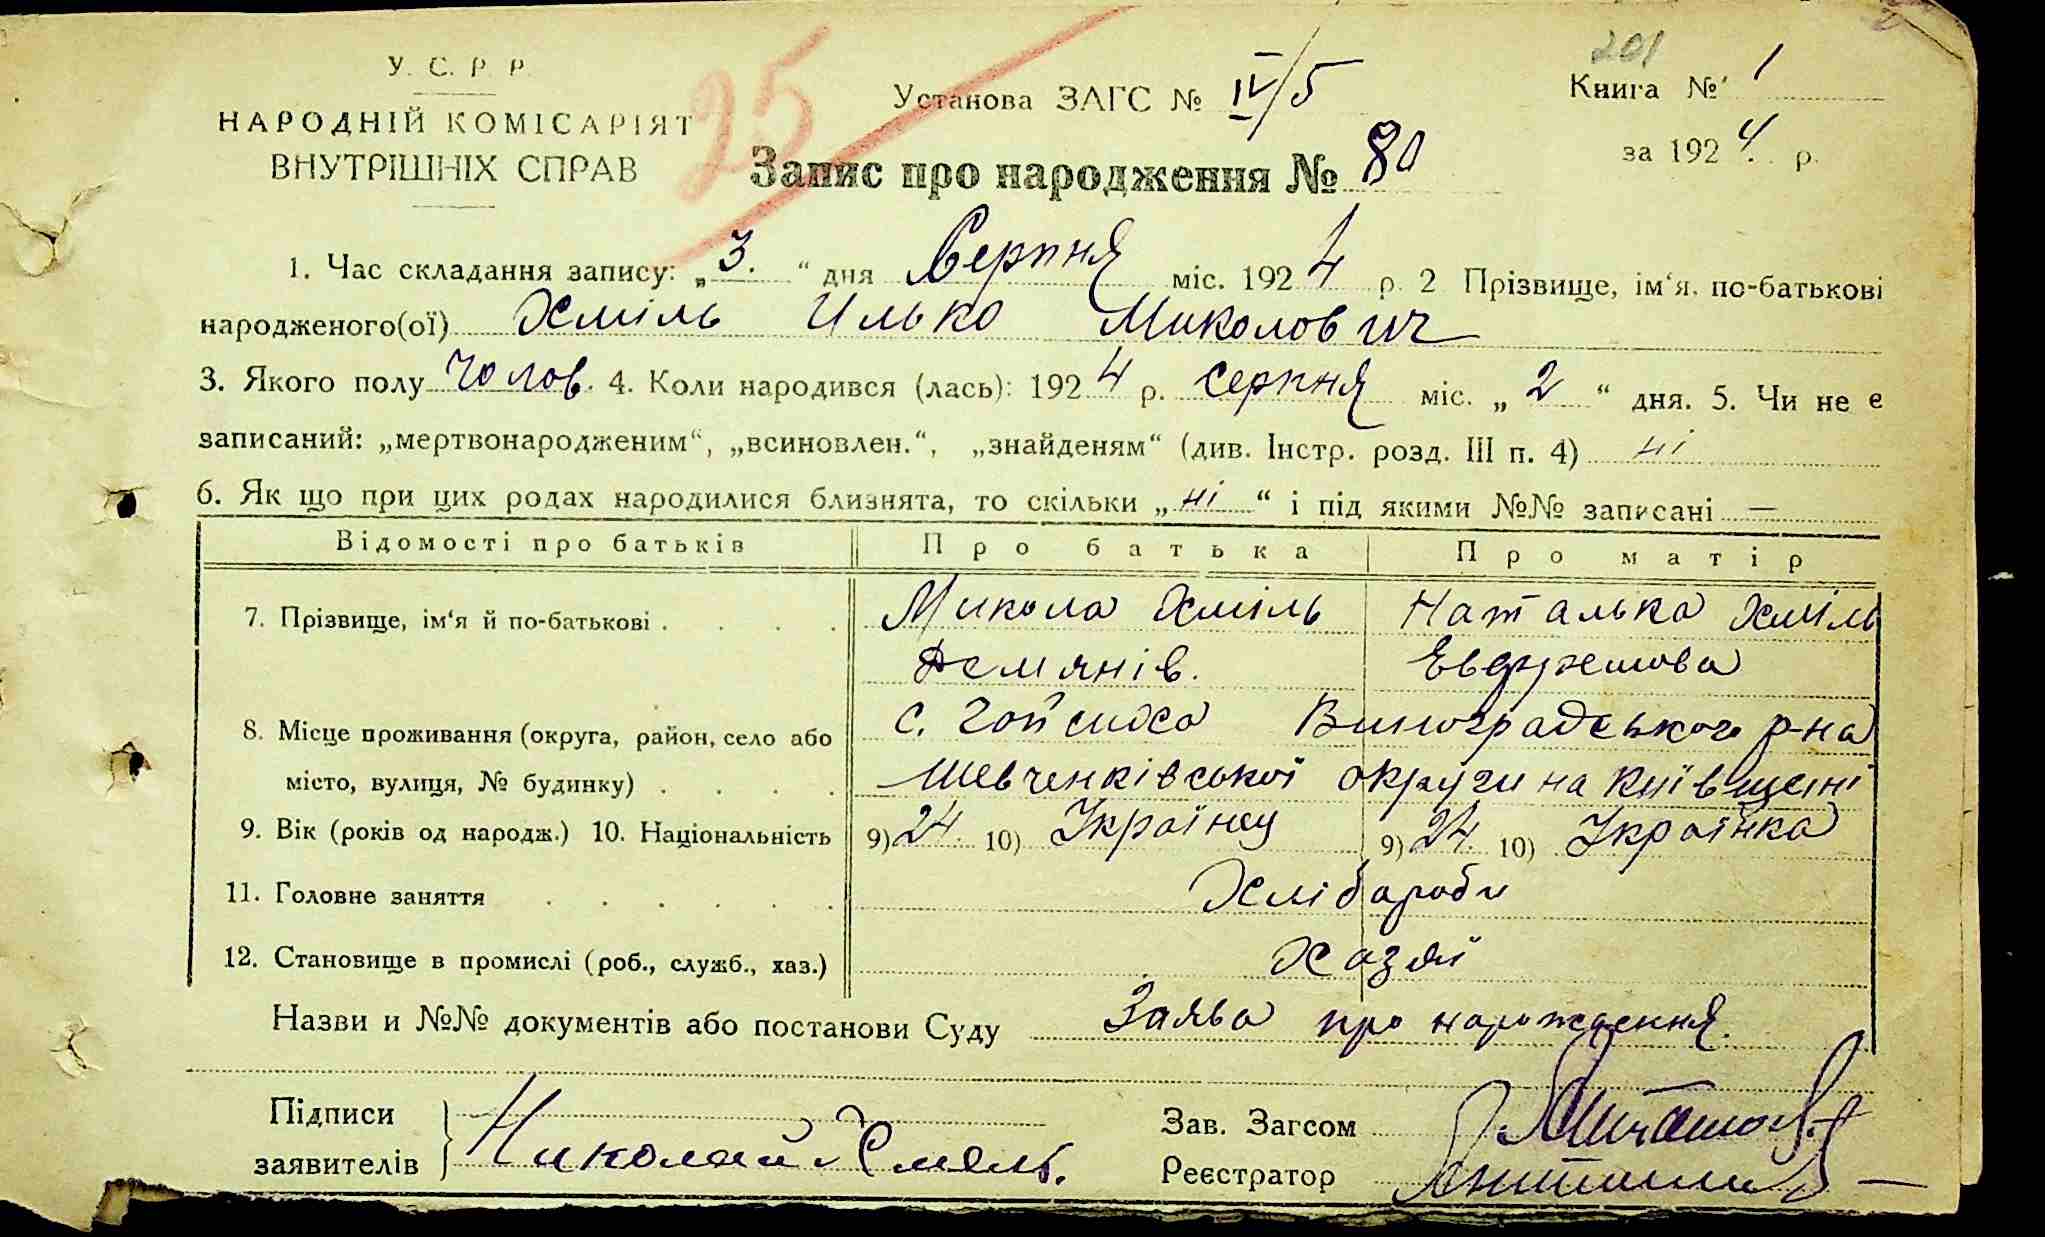 201
У. С. Р. Р.
Установа ЗАГС № IV/5
Книга № 1
НАРОДНІЙ КОМІСАРІЯТ
ВНУТРІШНІХ СПРАВ
25
за 1924 р.
Запис про народження № 80
1. Час складання запису: „3.“ дня Серпня міс. 1924 р. 2 Прізвище, ім‘я, по-батькові
народженого(ої) Хміль Илько Миколович
3. Якого полу чолов. 4. Коли народився (лась): 1924 р. серпня міс. „2“ дня. 5. Чи не є
записаний: „мертвонародженим“, „всиновлен.“, „знайденям“ (див. Інстр. розд. III п. 4) ні
6. Як що при цих родах народилися близнята, то скільки „ні“ і під якими №№ записані —
Відомості про батьків Про батька Про матір
7. Прізвище, ім‘я й по-батькові . . . . Микола Хміль Наталька Хміль
Демянів.
8. Місце проживання (округа, район, село або с. Виноградського р-на
місто, вулиця, № будинку) . . . . Шевченківської округи на Київщині
9. Вік (років од народж.) 10. Національність 9) 24. 10) Українец 9) 24. 10) Українка
11. Головне заняття . . . . . . Хлібороби
12. Становище в промислі (роб., служб., хаз.) Хазяї
Назви и №№ документів або постанови Суду Заява про нарождення.
Підписи
заявителів Николай Хмель.
Зав. Загсом
Реєстратор